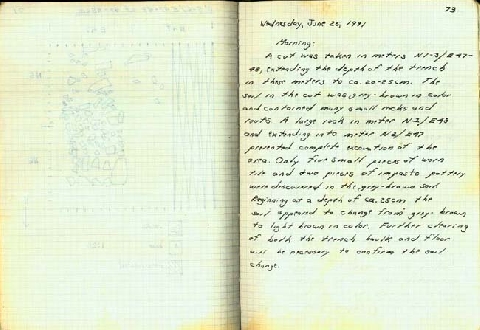 73
Wednesday, June 25, 1991
Morning:
A cut was taken in meters N2-3/E47-
48, extending the depth of the trench
in these meters to ca. 20-25cm. The
soil in the cut was grey-brown in color
and contained many small rocks and
roots. A large rock in meter N-3/E48
and extending into meter N2/E47
prevented complete excavation of the
area. Only five small pieces of worn
tile and two pieces of impasto pottery
were discovered in the grey-brown soil
Beginning at a depth of ca. 25cm the
soil appeared to change from grey-brown
to light brown in color. Further clearing
of both the trench baulk and floor
will be necessary to confirm the soil
change.